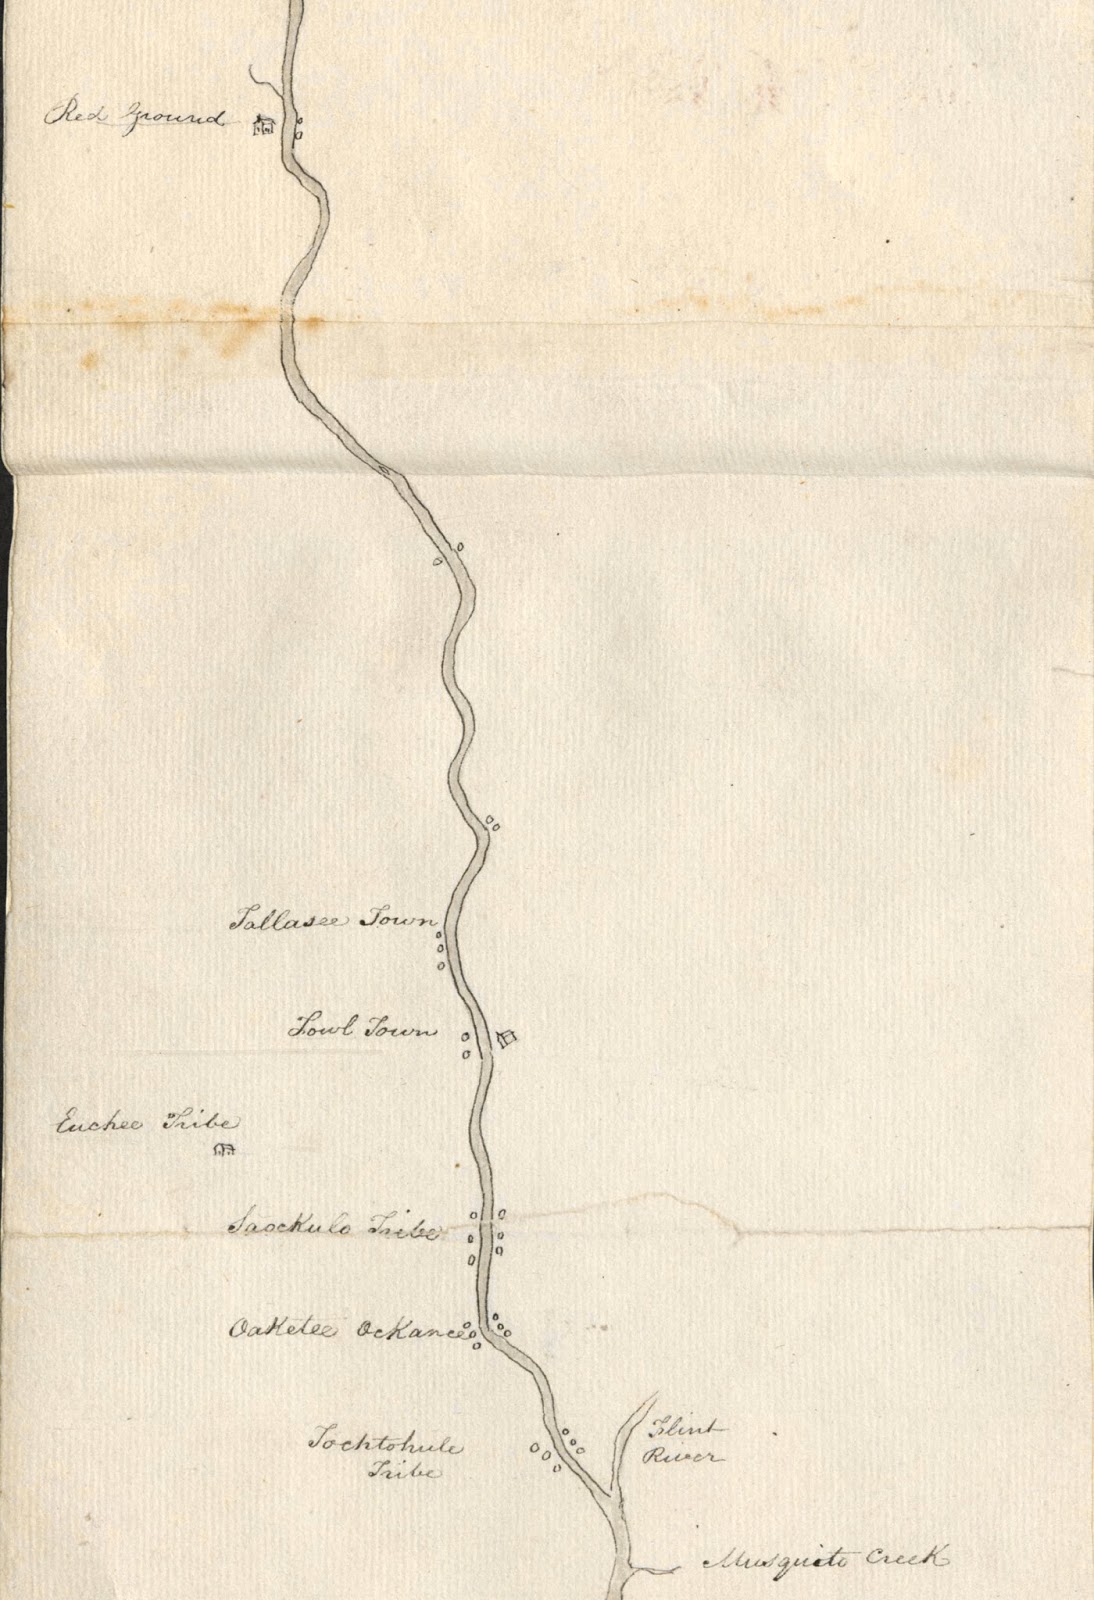 Red Ground
Tallasee Town
Fowl Town
Euchee Tribe
Saockulo Tribe
Oaketee Ockanee
Tochtohule
Tribe
Flint
River
Musquito Creek